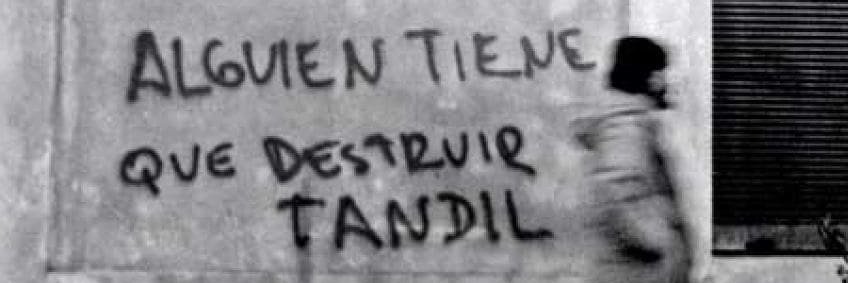 ALGUIEN TIENE
QUE DESTRUIR
TANDIL